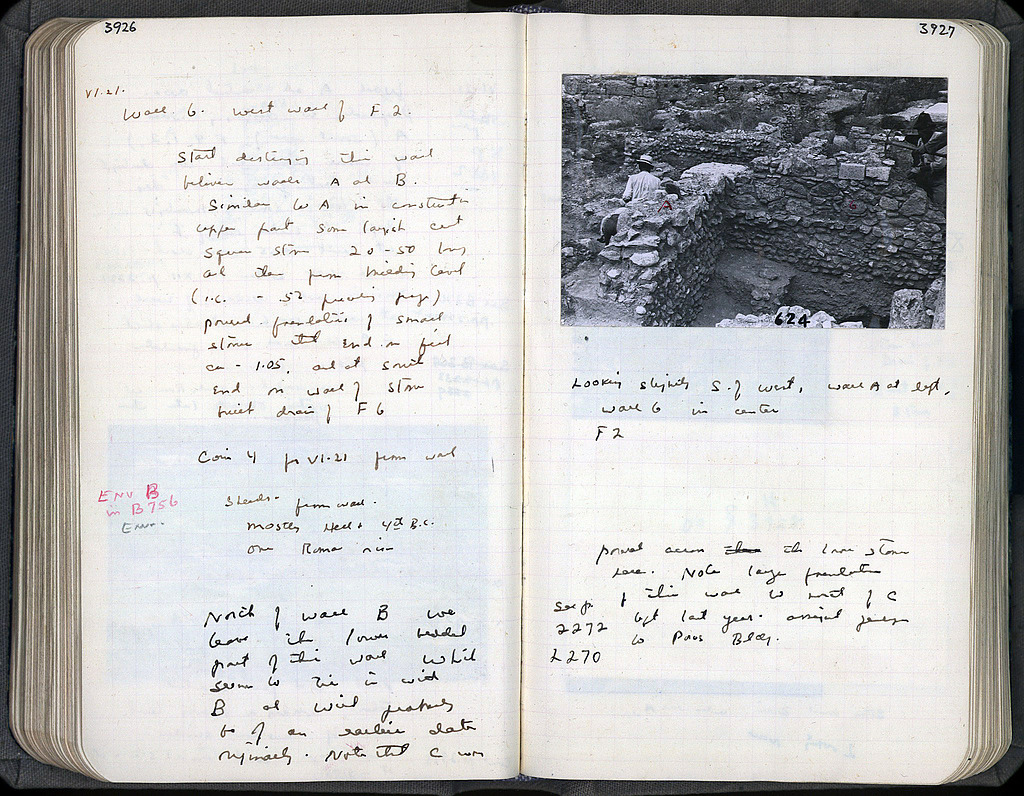 3926
VI.21.
Wall 6. West wall of F2.
Start destroying this wall
between walls A and B.
Similar to A in construction
upper part some largish cut
square stones 20-50 long
and then from building level
(i.c. - .52 previous page)
poured foundation of small
stones end in fill
ca - 1.05, and at south
end on wall of stone
built drain of F6
Coin 4 for VI.21 from wall
ENV B
in B756
Env.
Sherds. from wall.
Mostly Hell + 4th B.C.
one Roman rim
North of wall B we
leave the lower bedded
part of this wall which
seems to tie in with
B and with probably
to of an earlier date
originally. Note that C was
3927
A
6
624
Looking slightly S. of west, wall A at left,
wall 6 in center
F2
poured across the stone
Note large foundation
of this wall to west of C
See p.
2272 last year. assigned
to Poros Bldg.
2270